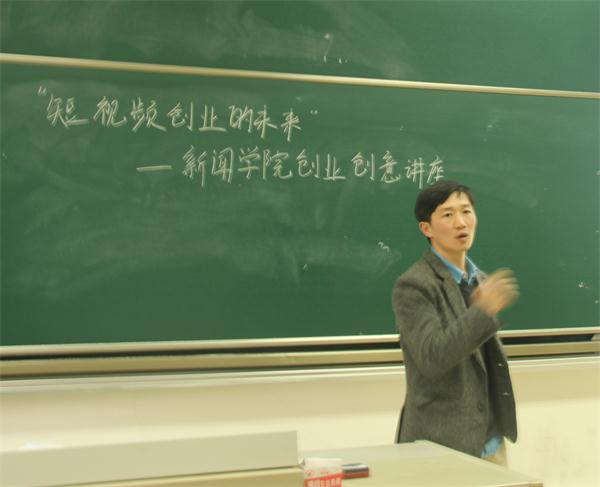 "短视频创业的未来"
—新闻学院创业创意讲座